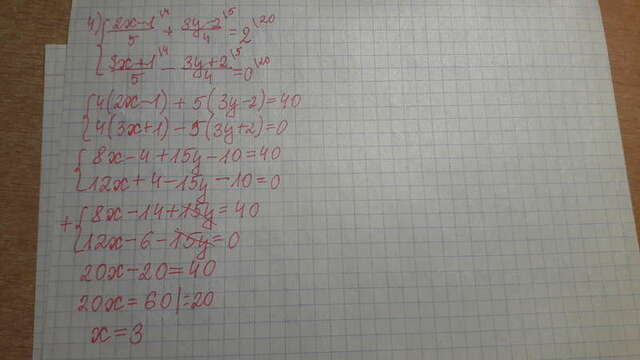 4) { (2x-1)/5 \4 + (3y-2)/4 \5 = 2 \20
{ (3x+1)/5 \4 - (3y+2)/4 \5 = 0 \20
{ 4(2x-1) + 5(3y-2) = 40
4(3x+1) - 5(3y+2) = 0
{ 8x-4+15y-10=40
12x+4-15y-10=0
+ { 8x-14+15y=40
12x-6-15y=0
20x-20=40
20x=60|:20
x=3